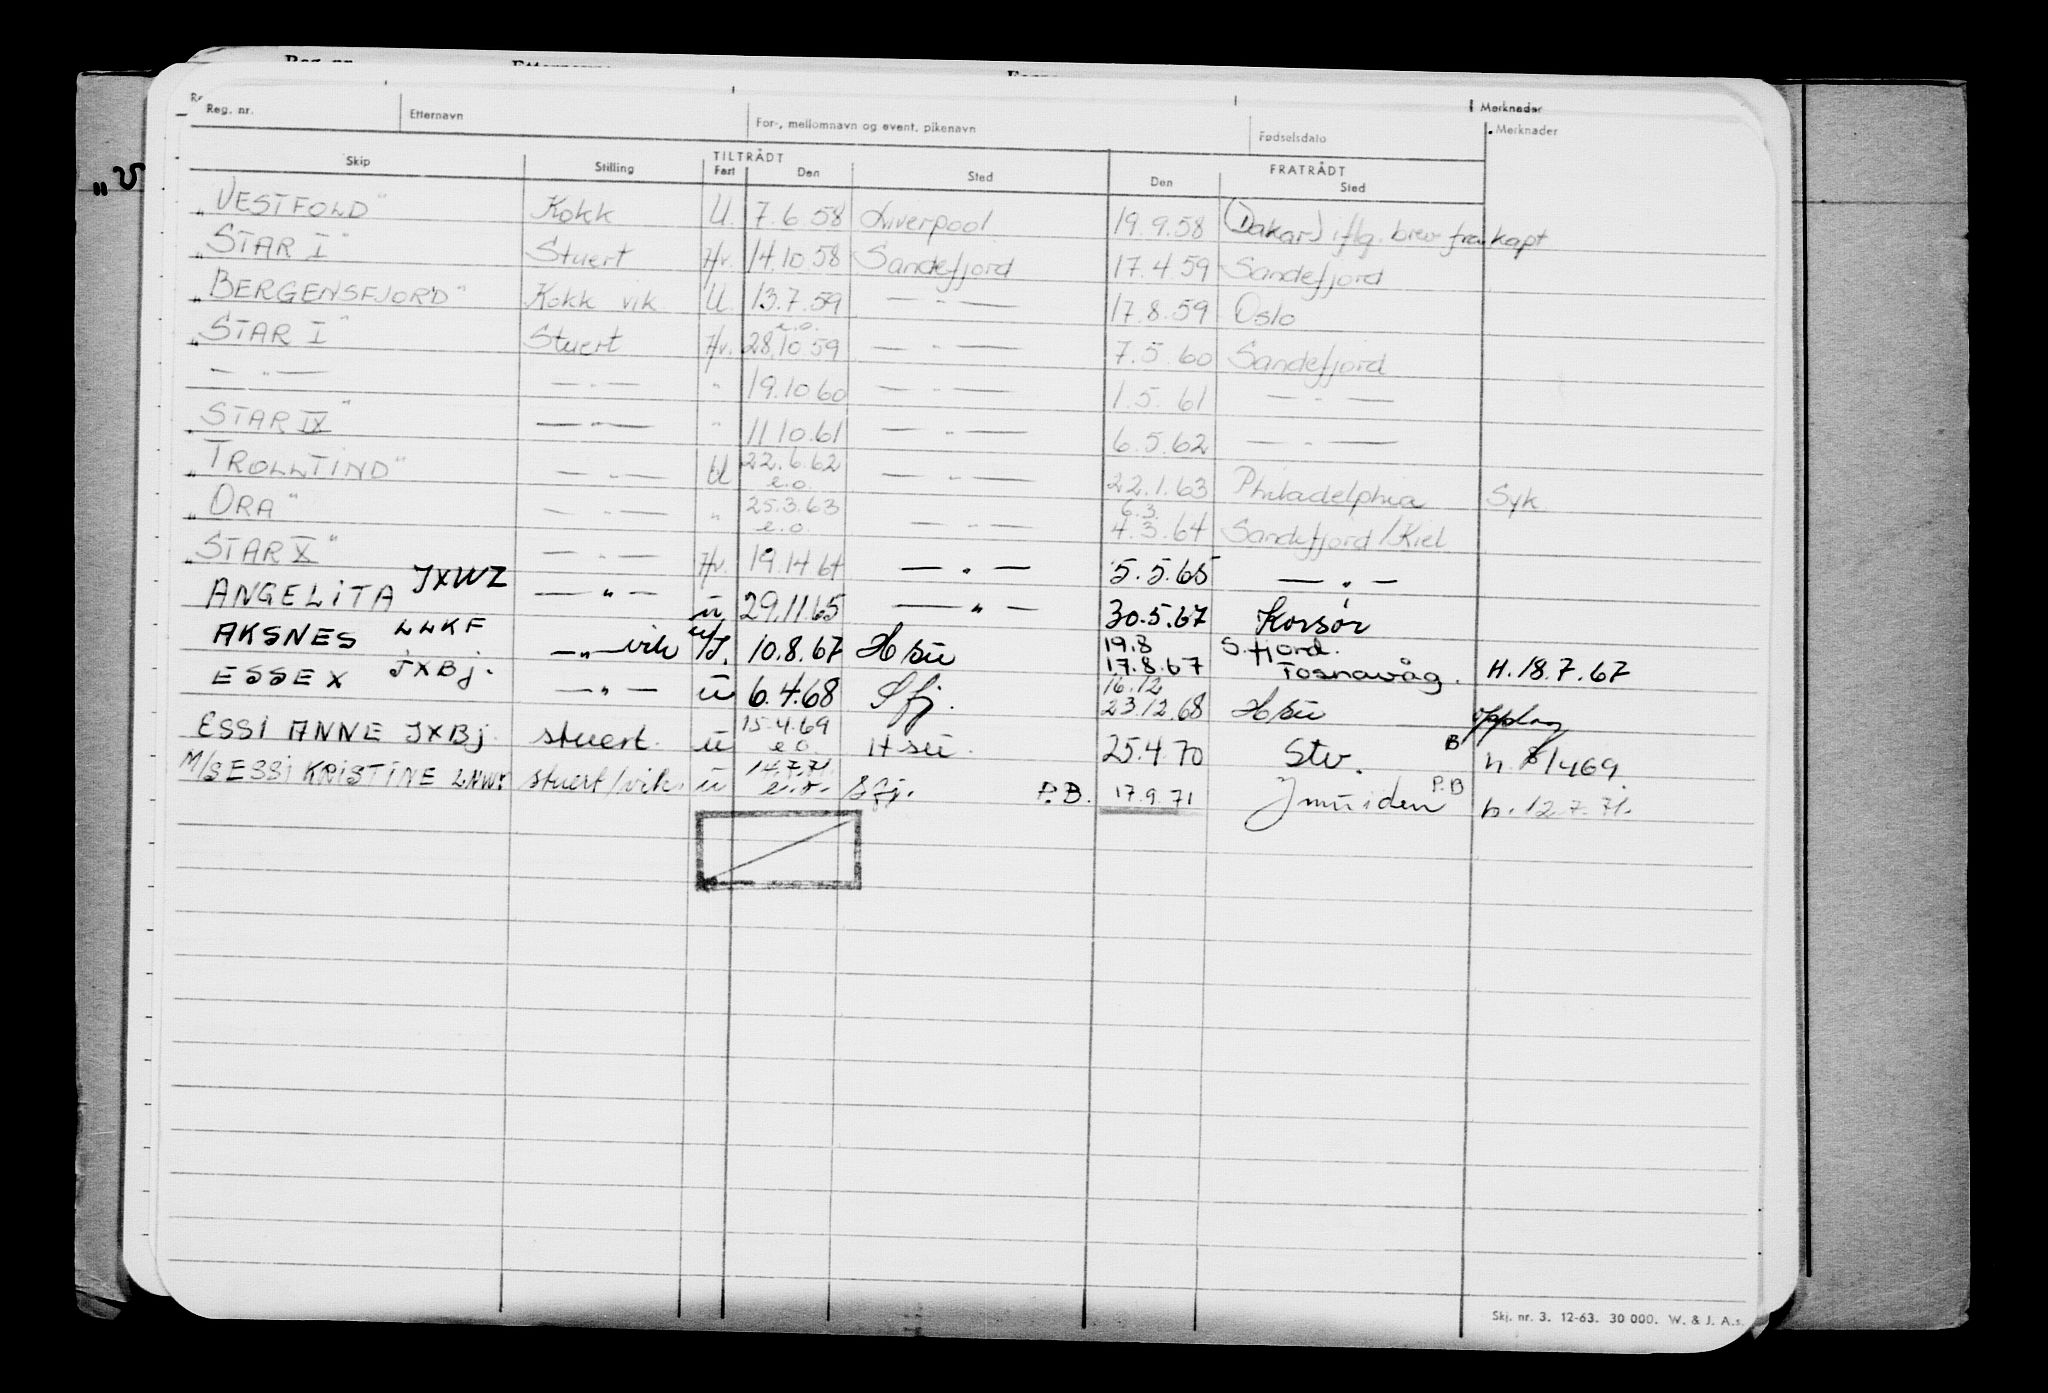 Reg. nr. Etternavn For-, mellomnavn og event. pikenavn Fødselsdato Merknader
Merknader
Skip Stilling TILTRÅDT FRATRÅDT
Fart Den Sted Den Sted
„VESTFOLD" Kokk U. 7.6.58 Liverpool 19.9.58 (Dakar) iflg. brev fra kapt
„STAR I" Stuert Hv. 14.10.58 Sandefjord 17.4.59 Sandefjord
„BERGENSFJORD" Kokk vik U. 13.7.59 — " — 17.8.59 Oslo
„STAR I" Stuert Hv. e.o. 28.10.59 — " — 7.5.60 Sandefjord
— " — — " — " 19.10.60 — " — 1.5.61 — " —
„STAR IX" — " — " 11.10.61 — " — 6.5.62 — " —
„TROLLTIND" — " — U 22.6.62 e.o. — " — 22.1.63 Philadelphia Syk
„ORA" — " — " 25.3.63 e.o. — " — 6.3. 4.3.64 Sandefjord/Kiel
„STAR X" — " — Hv. 19.14 64 — " — 5.5.65 — " —
ANGELITA JXWZ — " — u 29.11.65 — " — 30.5.67 Korsør
AKSNES LLKF — " — vik u/I. 10.8.67 H su 19.8 17.8.67 S.fjord. Fosnavåg. H.18.7.67
ESSEX JXBj. — " — u 6.4.68 Sfj. 16.12 23.12.68 H su opplag
ESSI ANNE JXBj. stuert. u 15.4.69 e.o. H su. 25.4.70 Stv. B h. 8/469.
M/S ESSI KRISTINE stuert/vik. u 14.7.71. e.o. Sfj. P.B. 17.9.71 Jmuiden P.B h. 12.7.71.
Skj. nr. 3. 12-63. 30 000. W. & J. A.s.